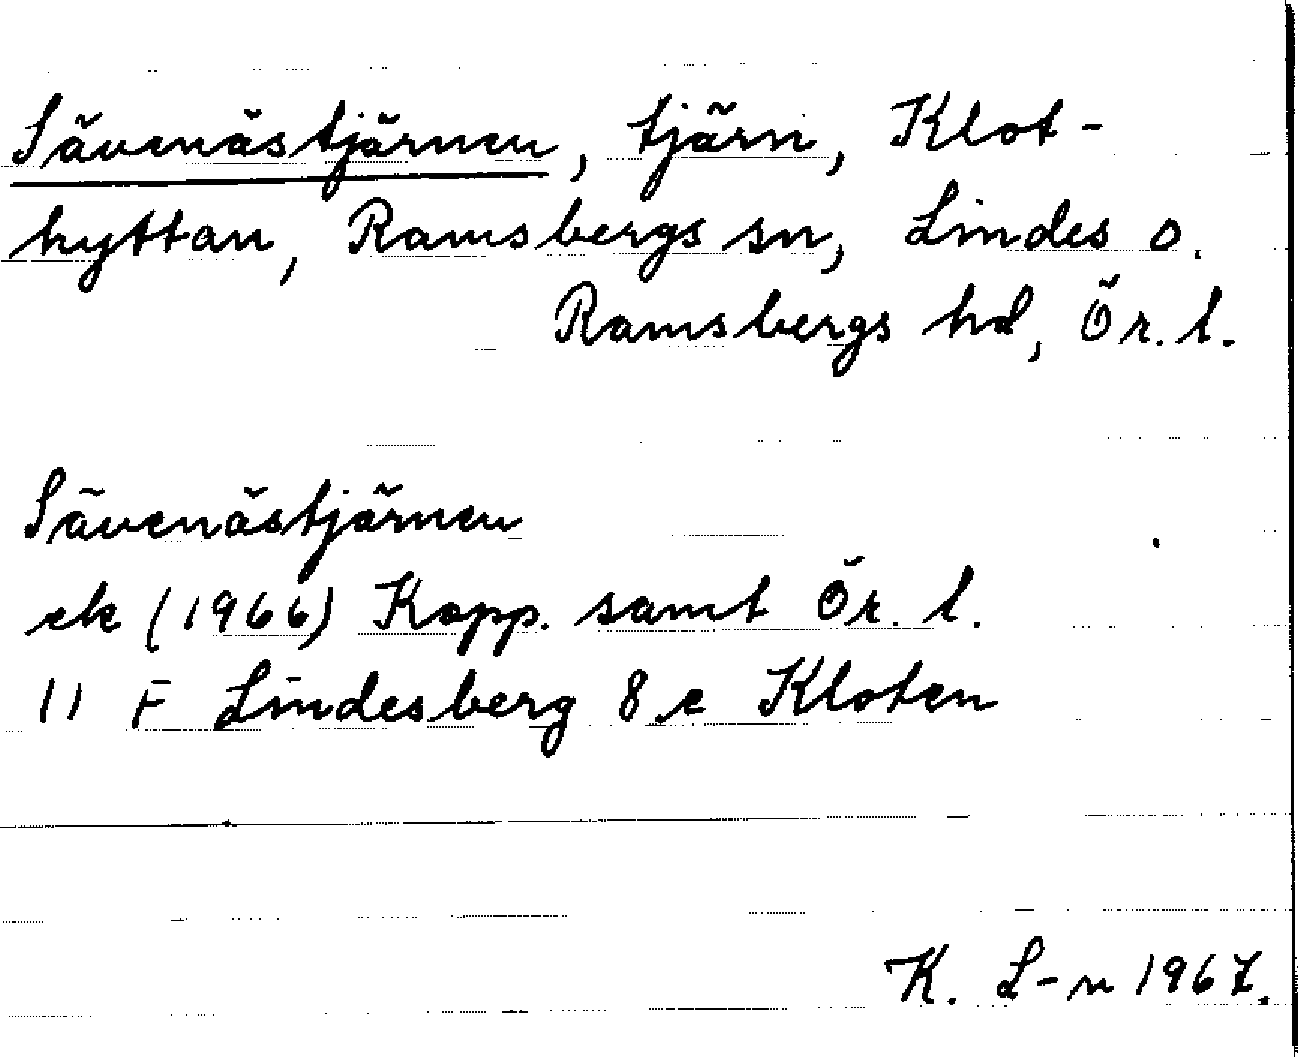 Sävenästjärnen, tjärn, Klot-
hyttan, Ramsbergs sn, Lindes o.
Ramsbergs hd, Ör. l.
Sävenästjärnen
ek (1966) Kopp. samt Ör. l.
11 F Lindesberg 8 e Kloten
K. L-n 1967.